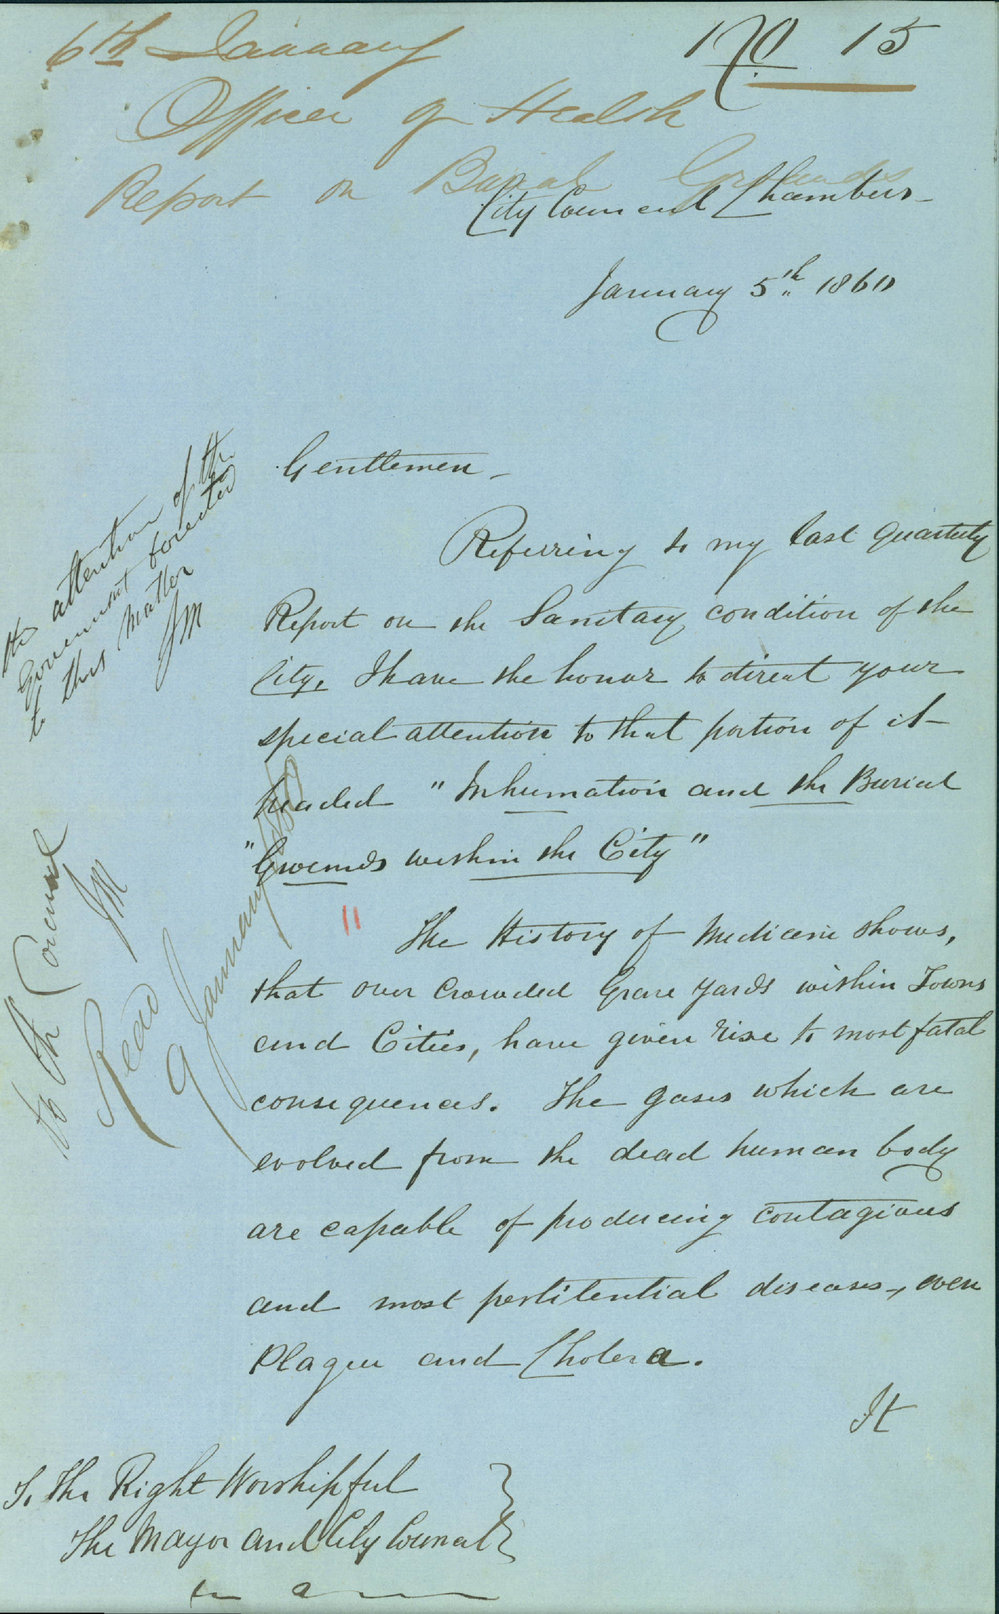 6th January
No 15
Officer of Health
Report on Burial Grounds
City Council Chambers
January 5th 1860
Gentlemen
Referring to my last Quarterly
Report on the Sanitary condition of the
City, I have the honor to direct your
special attention to that portion of it
headed "Inhumation and the Burial
"Grounds within the City"
" The History of Medicine shows,
that over crowded Grave yards within Towns
and Cities, have given rise to most fatal
consequences. The gases which are
evolved from the dead human body
are capable of producing contagious
and most pestilential diseases, even
Plague and Cholera.
It
To The Right Worshipful
The Mayor and City Council
the attention of the
Government directed
to this matter
JM
to the Council
JM
Read
9 January 1860